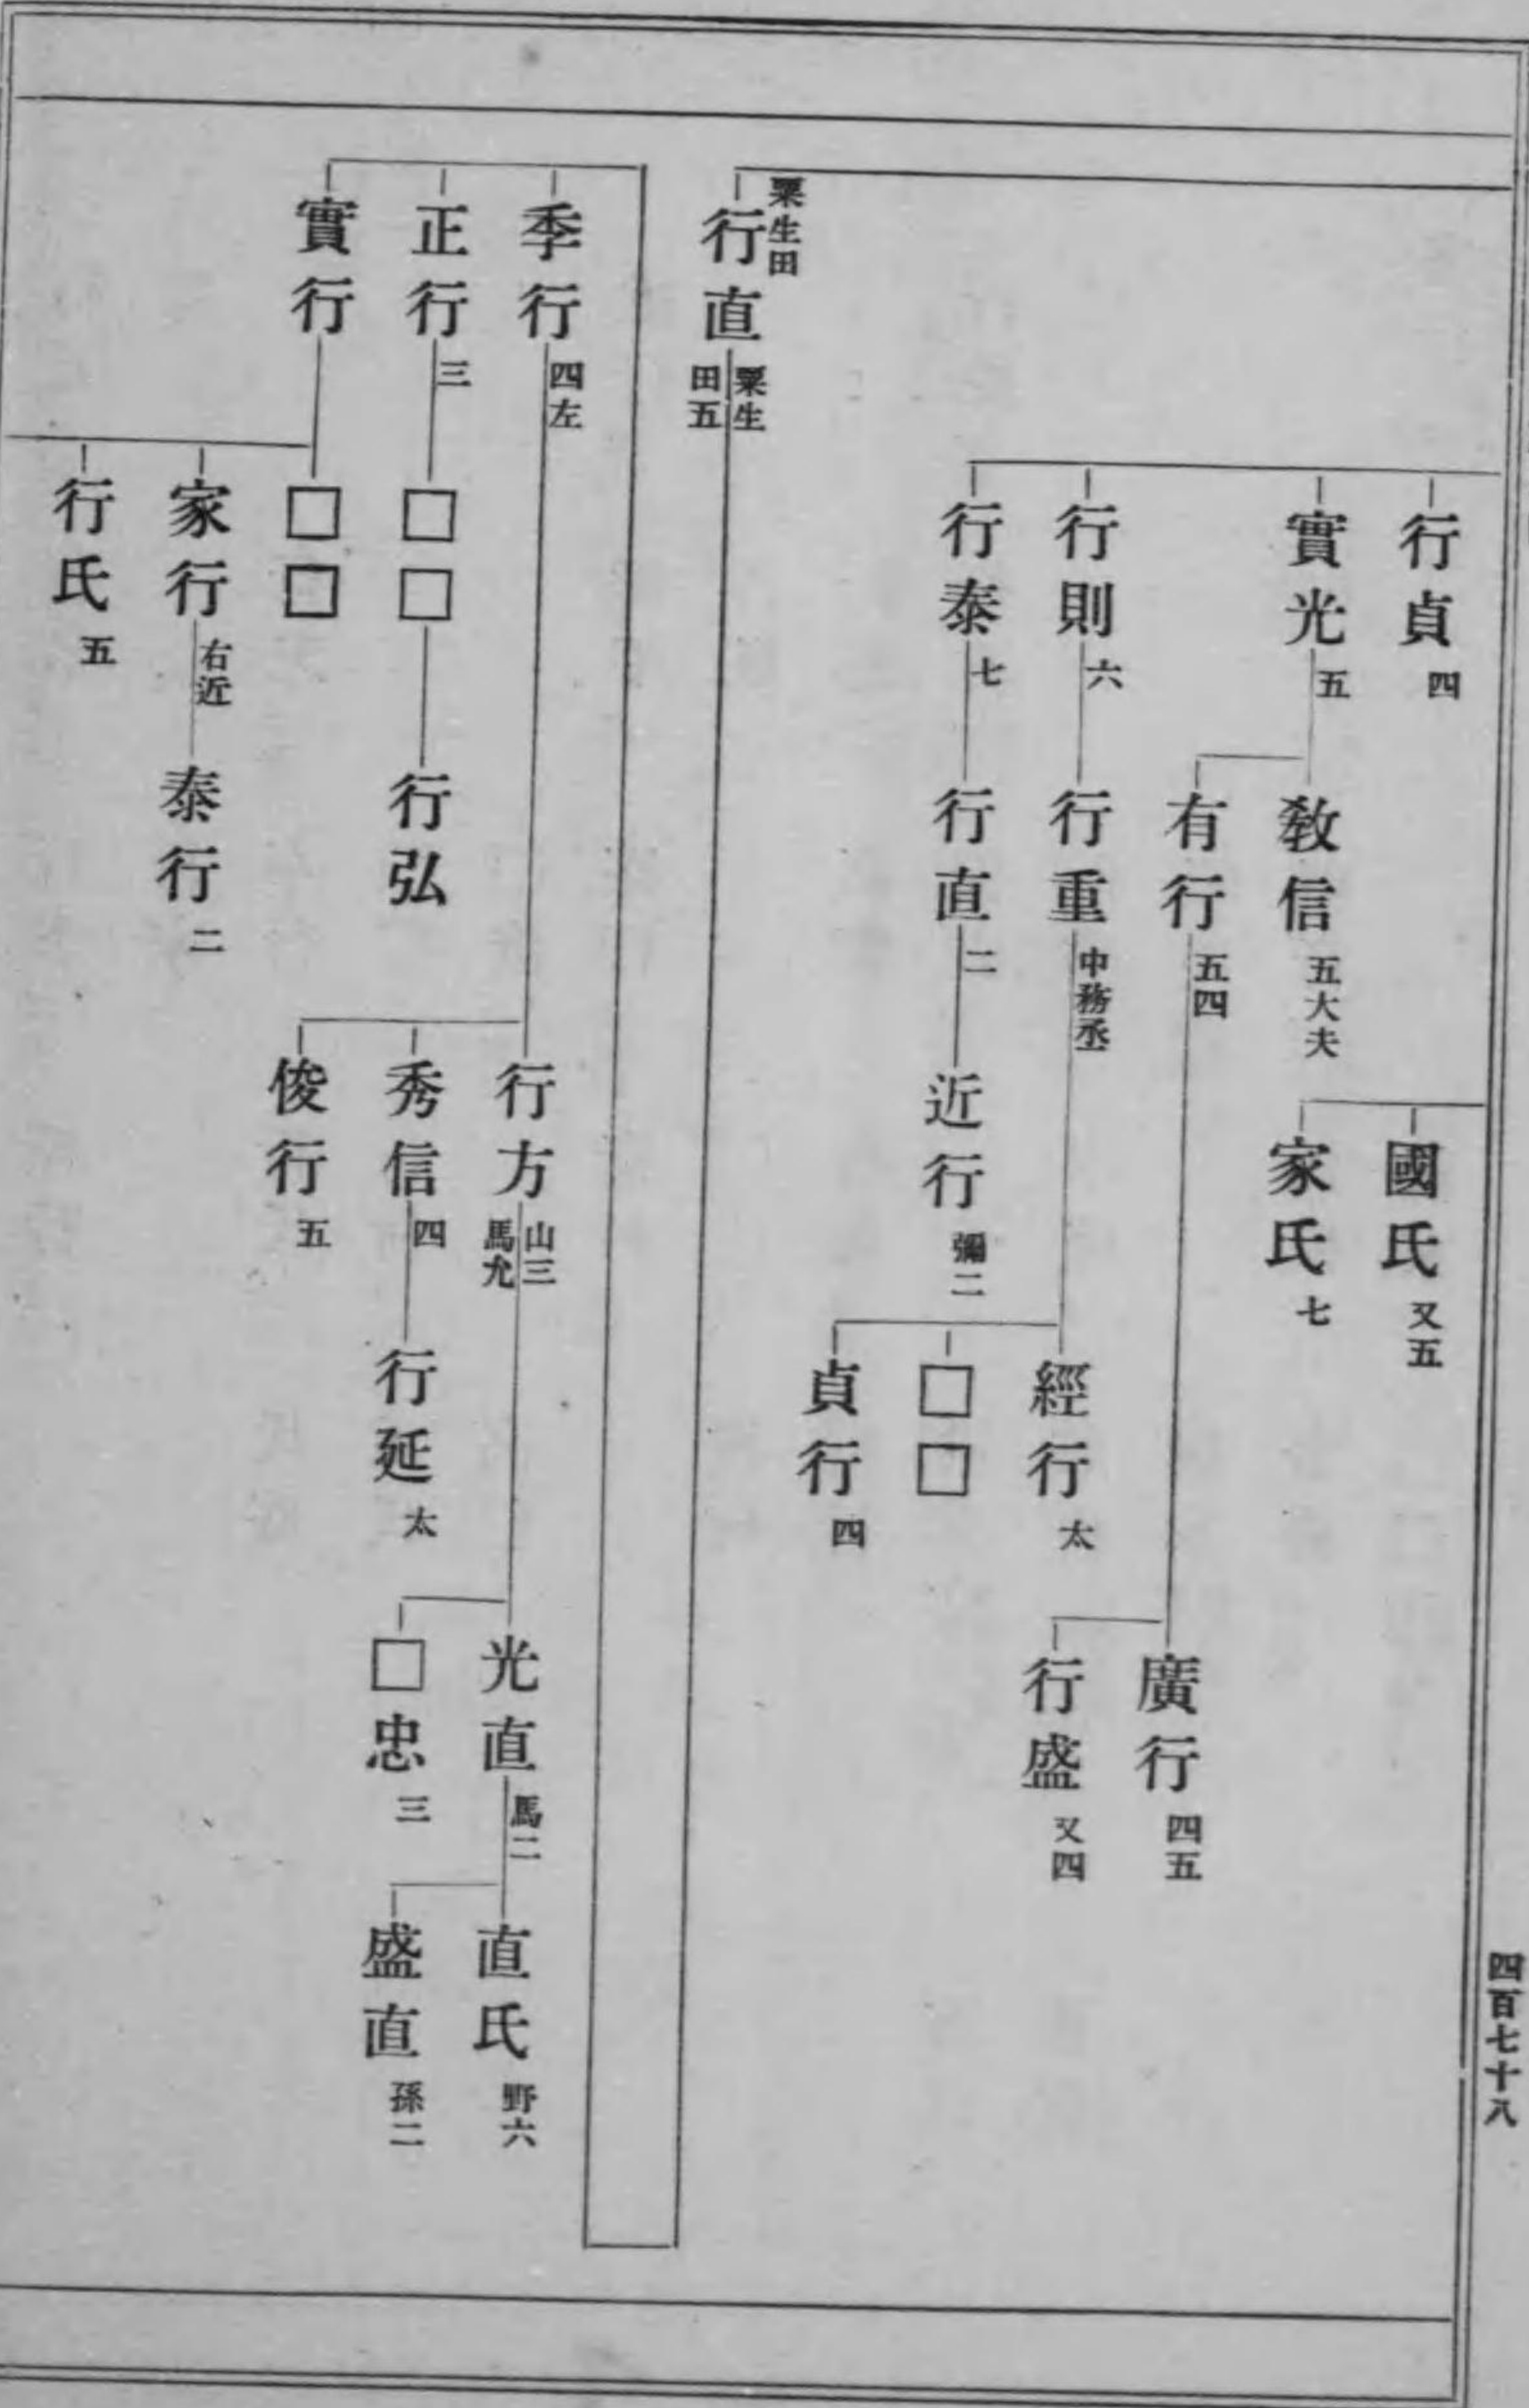 四百七十八
國氏 又五
家氏 七
行貞 四
實光 五
敎信 五大夫
有行 五四
廣行 四五
行盛 又四
行則 六
行重 中務丞
經行 太
□□
貞行 四
行泰 七
行直 二
近行 彌二
粟生田
行直 粟生田五
季行 四左
行方 山三馬允
光直 馬二
直氏 野六
盛直 孫二
□忠 三
秀信 四
行延 太
俊行 五
正行 三
□□
行弘
實行
□□
家行 右近
泰行 二
行氏 五